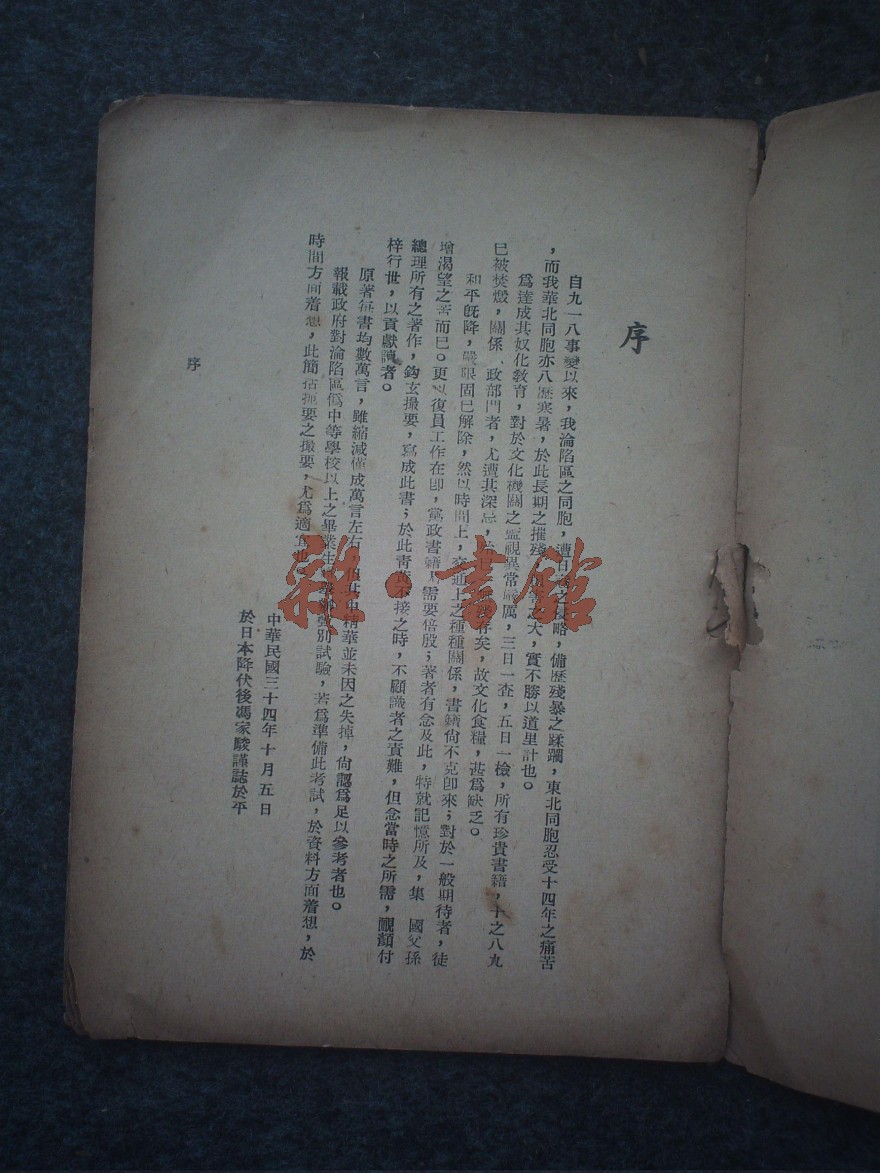 序
自九一八事變以來，我淪陷區之同胞，遭日之侵略，備歷殘暴之蹂躪，東北同胞忍受十四年之痛苦
，而我華北同胞亦八歷寒暑，於此長期之摧殘，之大，實不勝以道里計也。
爲達成其奴化敎育，對於文化機關之監視異常嚴厲，三日一查，五日一檢，所有珍貴書籍，十之八九
已被焚燬，關係政部門者，尤遭其深忌，存矣，故文化食糧，甚爲缺乏。
和平旣降，嚴限固已解除，然以時間上，交通上之種種關係，書籍尙不克卽來；對於一般期待者，徒
增渴望之苦而已。更以復員工作在卽，黨政書籍需要倍殷；著者有念及此，特就記憶所及，集　國父孫
總理所有之著作，鈎玄撮要，寫成此書；於此靑黃不接之時，不顧識者之責難，但念當時之所需，靦顏付
梓行世，以貢獻讀者。
原著每書均數萬言，雖縮減僅成萬言左右，但其中精華並未因之失掉，尙認爲足以參考者也。
報載政府對淪陷區僞中等學校以上之畢業生，別試驗，若爲準備此考試，於資料方面着想，於
時間方面着想，此簡括扼要之撮要，尤爲適宜也。
中華民國三十四年十月五日
於日本降伏後馮家駿謹誌於平
序
雜·書館